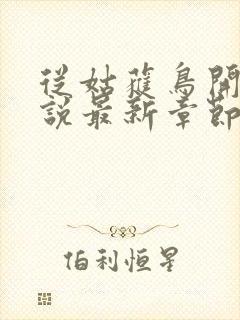 從姑蘿鳥開
說最新章節
伯利恒星